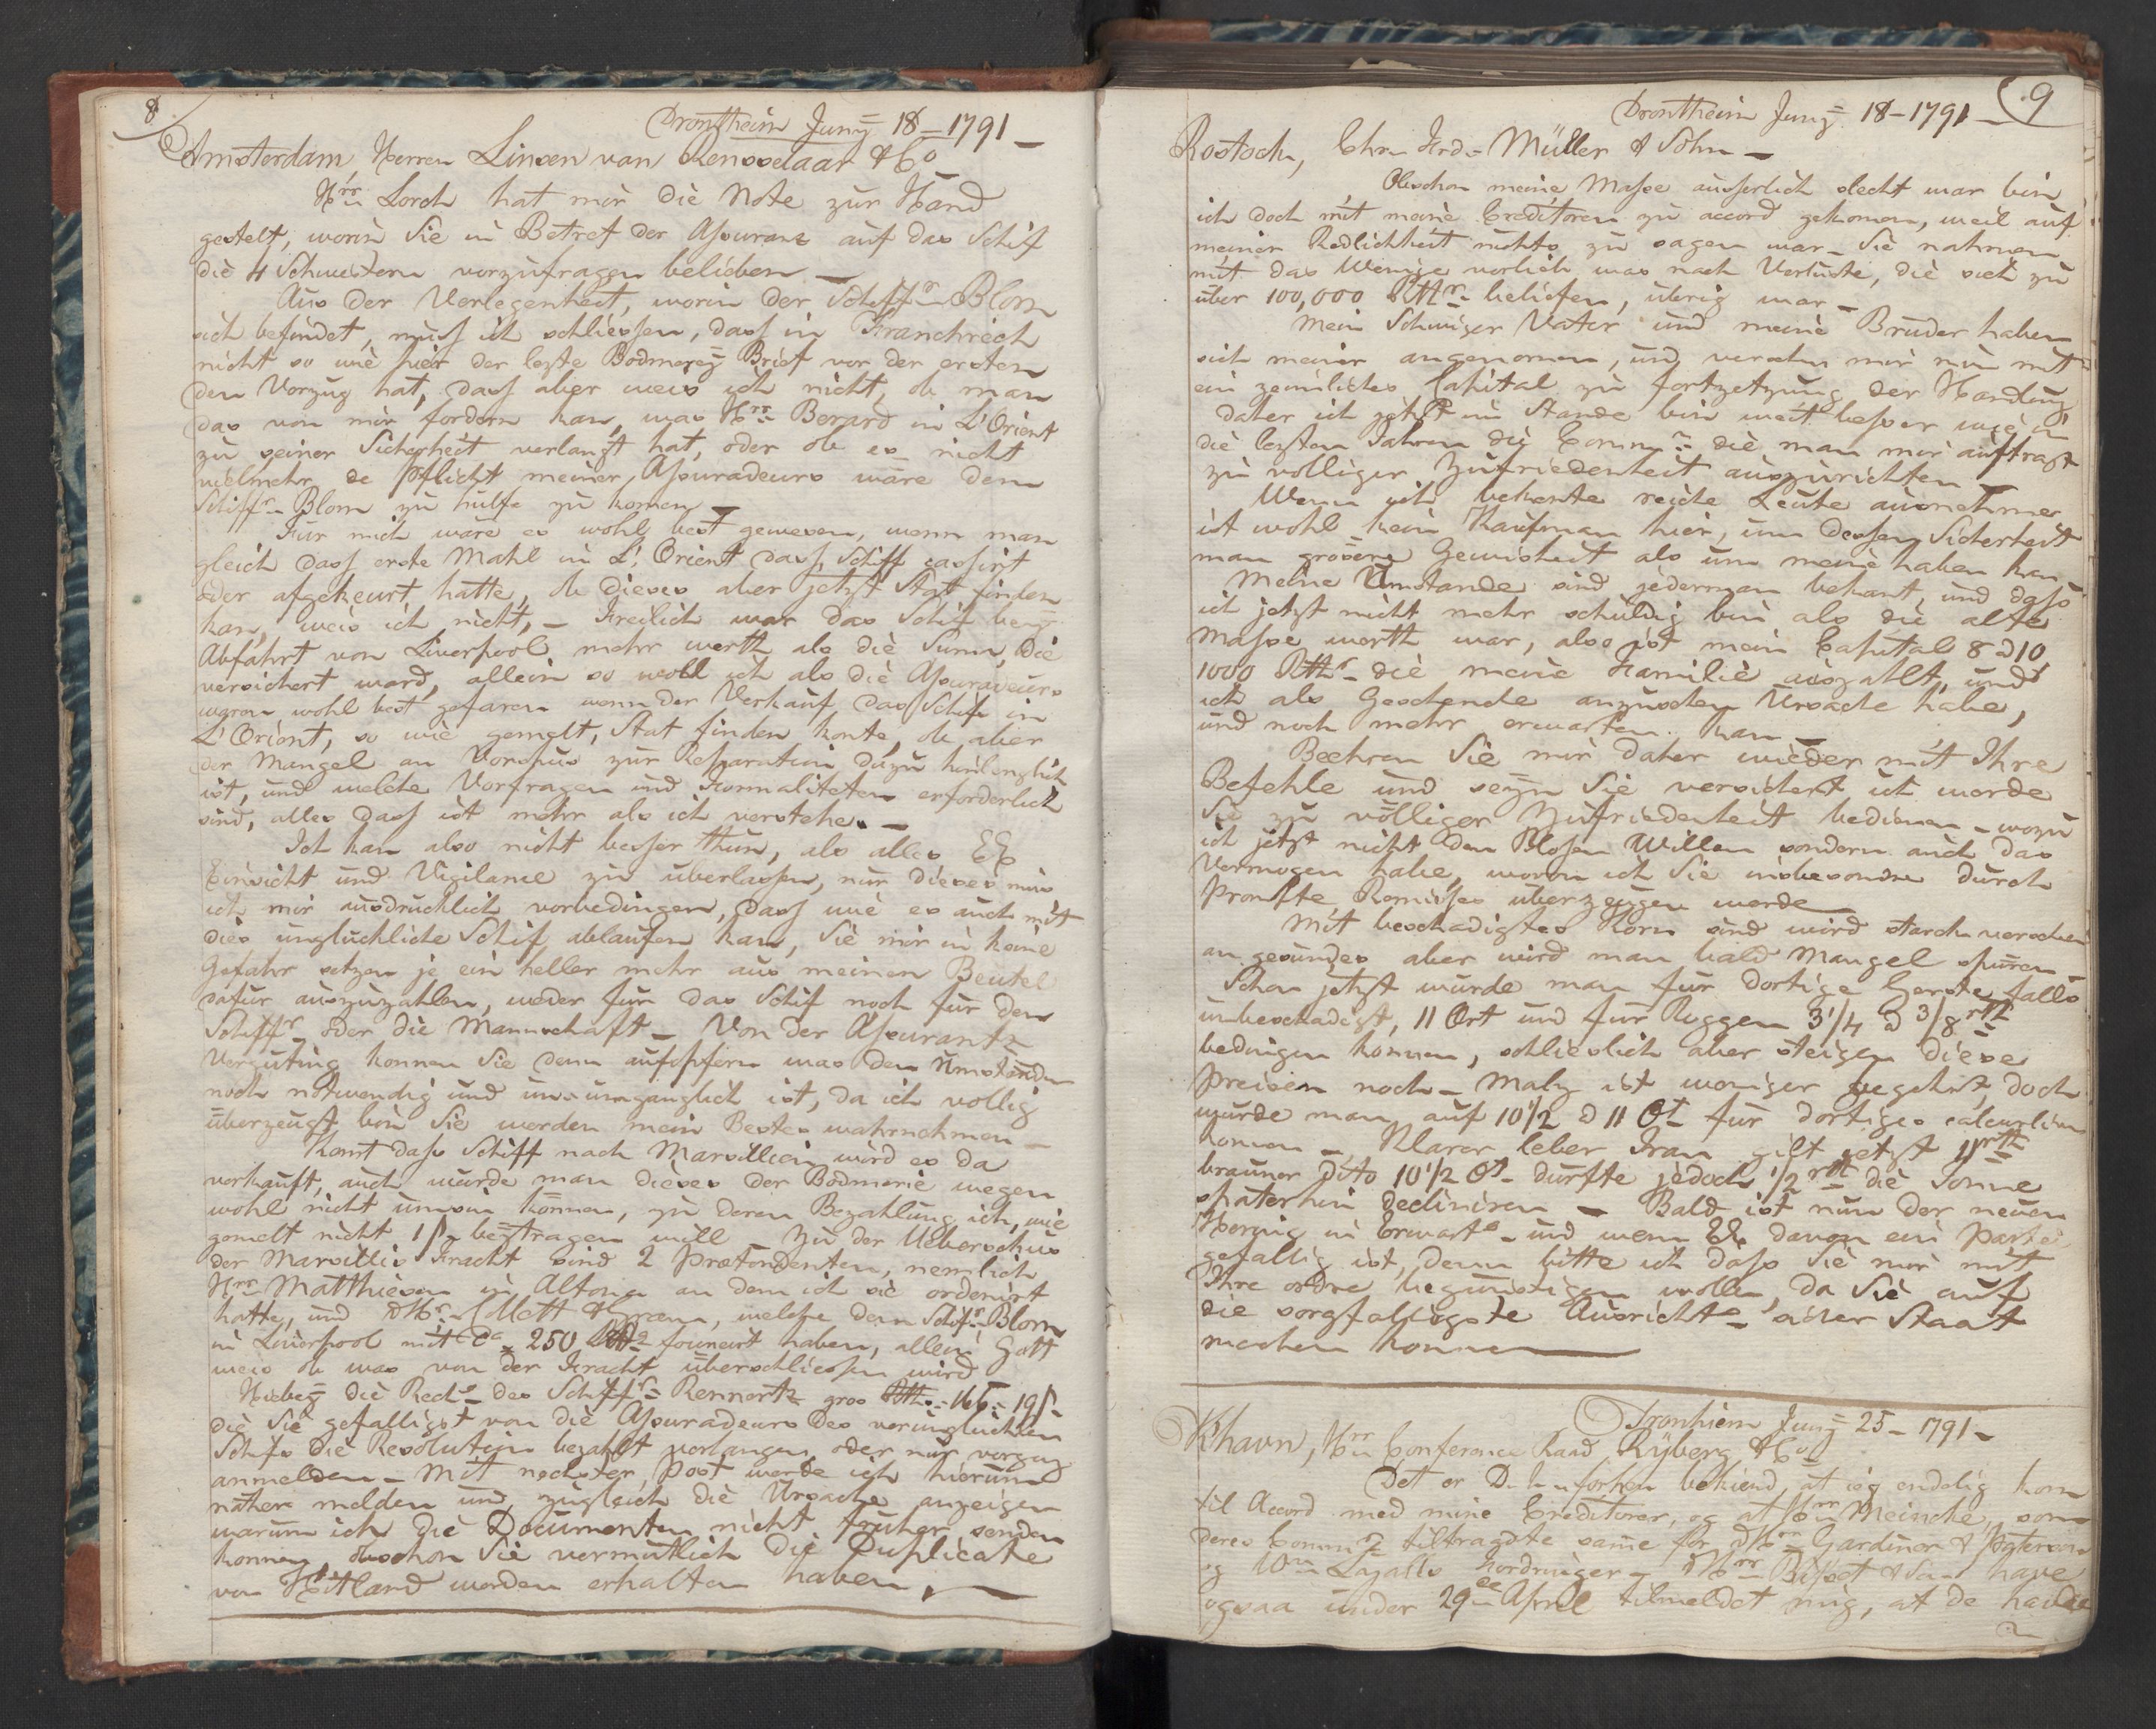 8
Drontheim Junÿ 18 – 1791 –
Amsterdam, Herren Linsen van Rensselaar & Co
Hrn Lorch hat mir die Note zur Hand
gestelt, worin Sie in Betref der Assurans auf das Schif
die 4 Schwestern vorzufragen belieben –
Aus der Verlegenheit, worin der Schiffr Blom
sich befindet, muss ich schliessen, dass in Franchreich
nicht so wie hier der lezte Bodmereÿ Brief vor der ersten
den Vorzug hat, dass aber weis ich nicht, ob man
das von mir fordern kan, was Hrn Berard in L'Orient
zu seiner Sicherheit verlangt hat, oder ob es nicht
vielmehr de Pflicht meiner Assuradeurs wäre dem
Schiffr Blom zu hülfe zu komen –
Für mich wäre es wohl best gewesen, wenn man
gleich dass erste Mahl in L'Orient dass Schiff cassirt
oder afgekeurt hatte, ob dieses aber jetzt Stat finden
kan, weis ich nicht, – Freilich war das Schif beÿ
Abfahrt von Liverpool mehr werth als die Sum, die
versichert ward, allein so wohl ich als die Assuradeurs
waren wohl best gefaren wenn der Verkauf das Schif in
L'Orient, so wie gemelt, Stat finden konte, ob aber
der Mangel an Vorschus zur Reparation dazu hinlenglich
ist, und welche Vorfragen und Formaliteten erforderlich
sind, alles dass ist mehr als ich verstehe. –
Ich kan also nicht besser thun, als alles EE
Einsicht und Vigilance zu überlassen, nur dieses mus
ich mir ausdrucklich vorbedingen, dass wie es auch mit
dies unglückliche Schif ablaufen kan, Sie mir in keine
Gefahr setzen je ein heller mehr aus meinen Beutel
dafür auszuzahlen, weder für das Schif noch für den
Schiffr oder die Mannschaft – Von der Assurantz
Vergüting konnen Sie denn aufopfern was den Umstanden
noch notwendig und un-umganglich ist, da ich vollig
überzeugt bin Sie werden mein Bestes wahrnehmen –
Komt dass Schiff nach Marsillien wird es da
verkauft, auch würde man dieses der Bodmerie wegen
wohl nicht umhin können, zu deren Bezahlung ich, wie
gemelt nicht 1 ß beÿtragen will – Zu der Ueberschus
der Marsillis Fracht sind 2 Prætendenten, nemlich
Hrn Matthiesen in Altona an dem ich sie ordenirt
hatte, und DHrn Mett & Gram, welche dem Schifr Blom
in Liverpool mit Ca 250 fournirt haben, allein Gott
weis ob was von der Fracht überschiessen wird
Hiebeÿ die Rech. des Schiffrs Rennertz gros Rthr 166 – 19 ß
die Sie gefalligst von die Assuradeurs des verunglückten
Schifs die Resolution bezahlt verlangen, oder nur vorzug
anmelden – Mit nechster Post werde ich hierum
näher melden und zugleich die Ursache anzeigen
warum ich die Documenten nicht früher senden
konnen, obschon Sie vermutlich die Duplicate
von Hitland werden erhalten haben, –
9
Drontheim Junÿ 18 – 1791 –
Rostoch, Chrn Frd. Müller & Sohn –
Obschon meine Masse ausserlich slecht war bin
ich doch mit meine Creditoren zu accord gekomen, weil auf
meiner Redlichkeit nichts zu sagen war – Sie nahmen
mit das Wenige vorlieb was nach Verluste, die sich zu
über 100,000 Rthr beliefen, übrig war –
Mein Schwiger Vater und meine Bruder haben
sich meiner angenomen, und versehen mir nun mit
ein zeimliches Capital zu fortzetzung der Handlung
daher ich jetzt im Stande bin weit besser wie in
die lezten Jahren die Comm. die man mir auftragt
zu volliger Zufriedenheit auszurichten –
Wenn ich bekente reiche Leute ausnehme
ist wohl kein Kaufman hier, um dessen Sicherheit
man grösere Gewisheit als um meine haben kan –
Meine Umstande sind jederman bekant, und dass
ich jetzt nicht mehr schuldig bin als die alte
Masse werth war, also ist mein Capital 8 à 10,
1000 Rthr – die meine Familie auszahlt, und
ich als Geschencke anzusehen Ursache habe,
und noch mehr erwarten kan –
Beehren Sie mir daher wieder mit Ihre
Befehle und seÿn Sie versichert ich werde
Sie zu völliger Zufriedenheit bedienen – wozu
ich jetzt nicht den Blosen Willen sondern auch das
Vermogen habe, wovon ich Sie insbesondre durch
Promte Remisses überzeugen werde –
Mit beschadigtes Korn sind wird starch versehen
an gesundes aber wird man bald Mangel spüren
Schon jetzt würde man für dortige Gerste falls
unbeschadigt, 11 Ort und für Roggen 3 1/4 à 3/8 rth
bedingen konnen, schlieslich aber steigen diese
Preisen noch – Malz ist weniger begehrt, doch
würde man auf 10 1/2 à 11 Ot für dortiges calculiren
konnen – Klarer leber Tran gilt jetzt 11 rth
brauner dito 10 1/2 Ot – dürfte jedoch 1/2 rth die Tonne
spaterhin decliniren – Bald ist nun der neuen
Hering in Erwart. – und wenn EE davon ein Partei
gefallig ist, denn bitte ich dass Sie mir mit
Ihre ordre begünstigen wollen, da Sie auf
die sorgfaltigste Ausricht. – aller Staat
machen konnen –
Tronhiem Junÿ 25 – 1791 –
Khavn, Hrn Conference Raad Rÿberg & Co
Det er D. forhen bekiend, at ieg endelig kom
til Accord med mine Creditorer, og at Hrn Meincke, som
deres Comm. tiltragdte samme for DHrn Gardiner & Paterson
og Wm Lyalls Fordringer – DHrr Bisset & Søn have
ogsaa under 29de April tilmeldet mig, at de havde